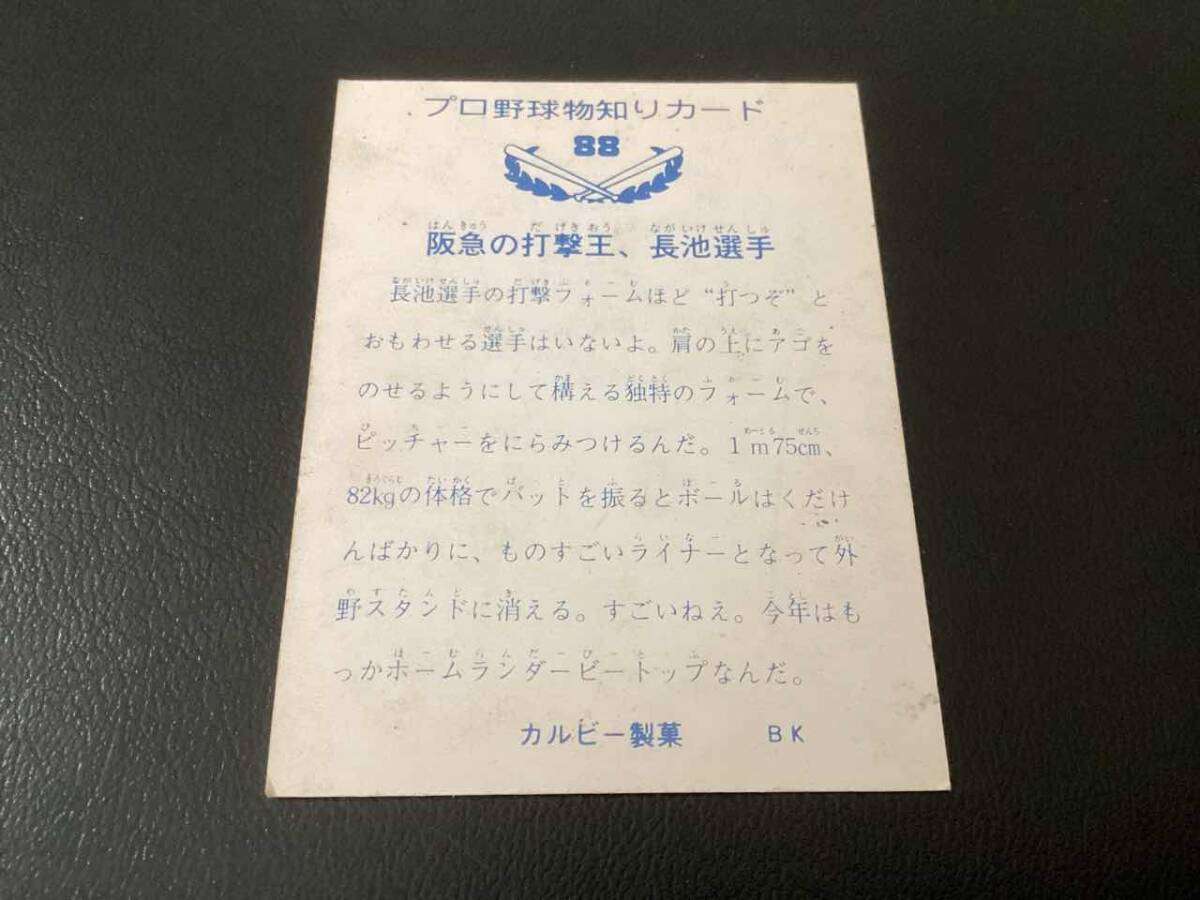 プロ野球物知りカード
88
阪急の打撃王、長池選手
長池選手の打撃フォームほど“打つぞ”と
おもわせる選手はいないよ。肩の上にアゴを
のせるようにして構える独特のフォームで、
ピッチャーをにらみつけるんだ。1m75cm、
82kgの体格でバットを振るとボールはくだけ
んばかりに、ものすごいライナーとなって外
野スタンドに消える。すごいねえ。今年はも
っかホームランダービートップなんだ。
カルビー製菓 BK